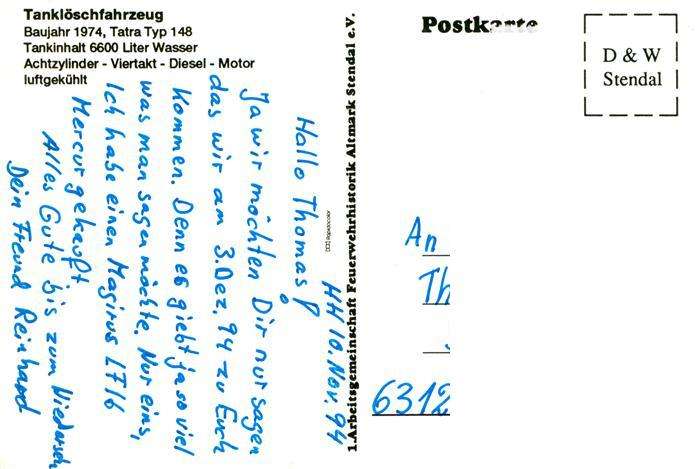 Tanklöschfahrzeug
Baujahr 1974, Tatra Typ 148
Tankinhalt 6600 Liter Wasser
Achtzylinder - Viertakt - Diesel - Motor
luftgekühlt
HH 10. Nov. 94
Hallo Thomas!
Ja wir möchten Dir nur sagen
das wir am 3. Dez. 94 zu Euch
kommen. Denn es giebt ja so viel
was man sagen möchte. Nur eins,
Ich habe einen Magirus LF16
Mercur gekauft
Alles Gute bis zum Wiedersehn
Dein Freund Reinhard
1.Arbeitsgemeinschaft Feuerwehrhistorik Altmark Stendal e.V.
Postkarte
D & W
Stendal
An
Th
6312